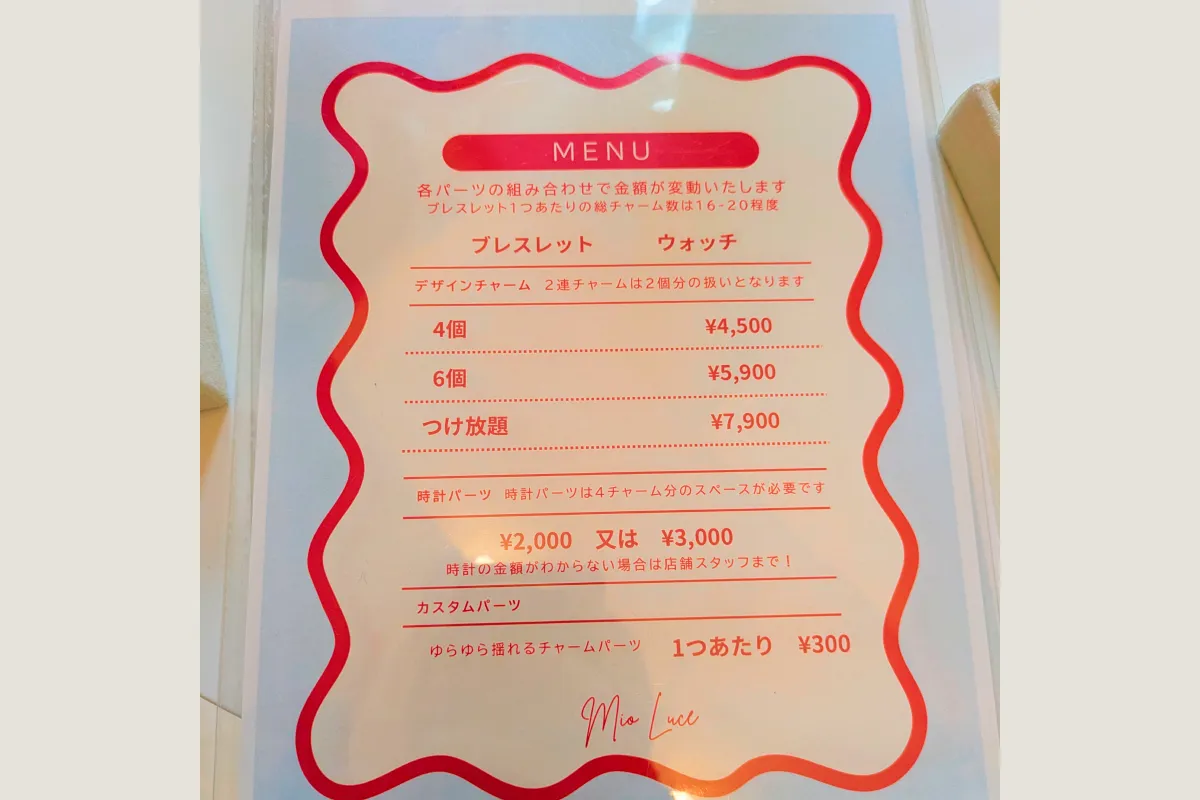 MENU
各パーツの組み合わせで金額が変動いたします
ブレスレット1つあたりの総チャーム数は16-20程度
ブレスレット ウォッチ
デザインチャーム 2連チャームは2個分の扱いとなります
4個 ¥4,500
6個 ¥5,900
つけ放題 ¥7,900
時計パーツ 時計パーツは4チャーム分のスペースが必要です
¥2,000 又は ¥3,000
時計の金額がわからない場合は店舗スタッフまで！
カスタムパーツ
ゆらゆら揺れるチャームパーツ 1つあたり ¥300
Mio Luce